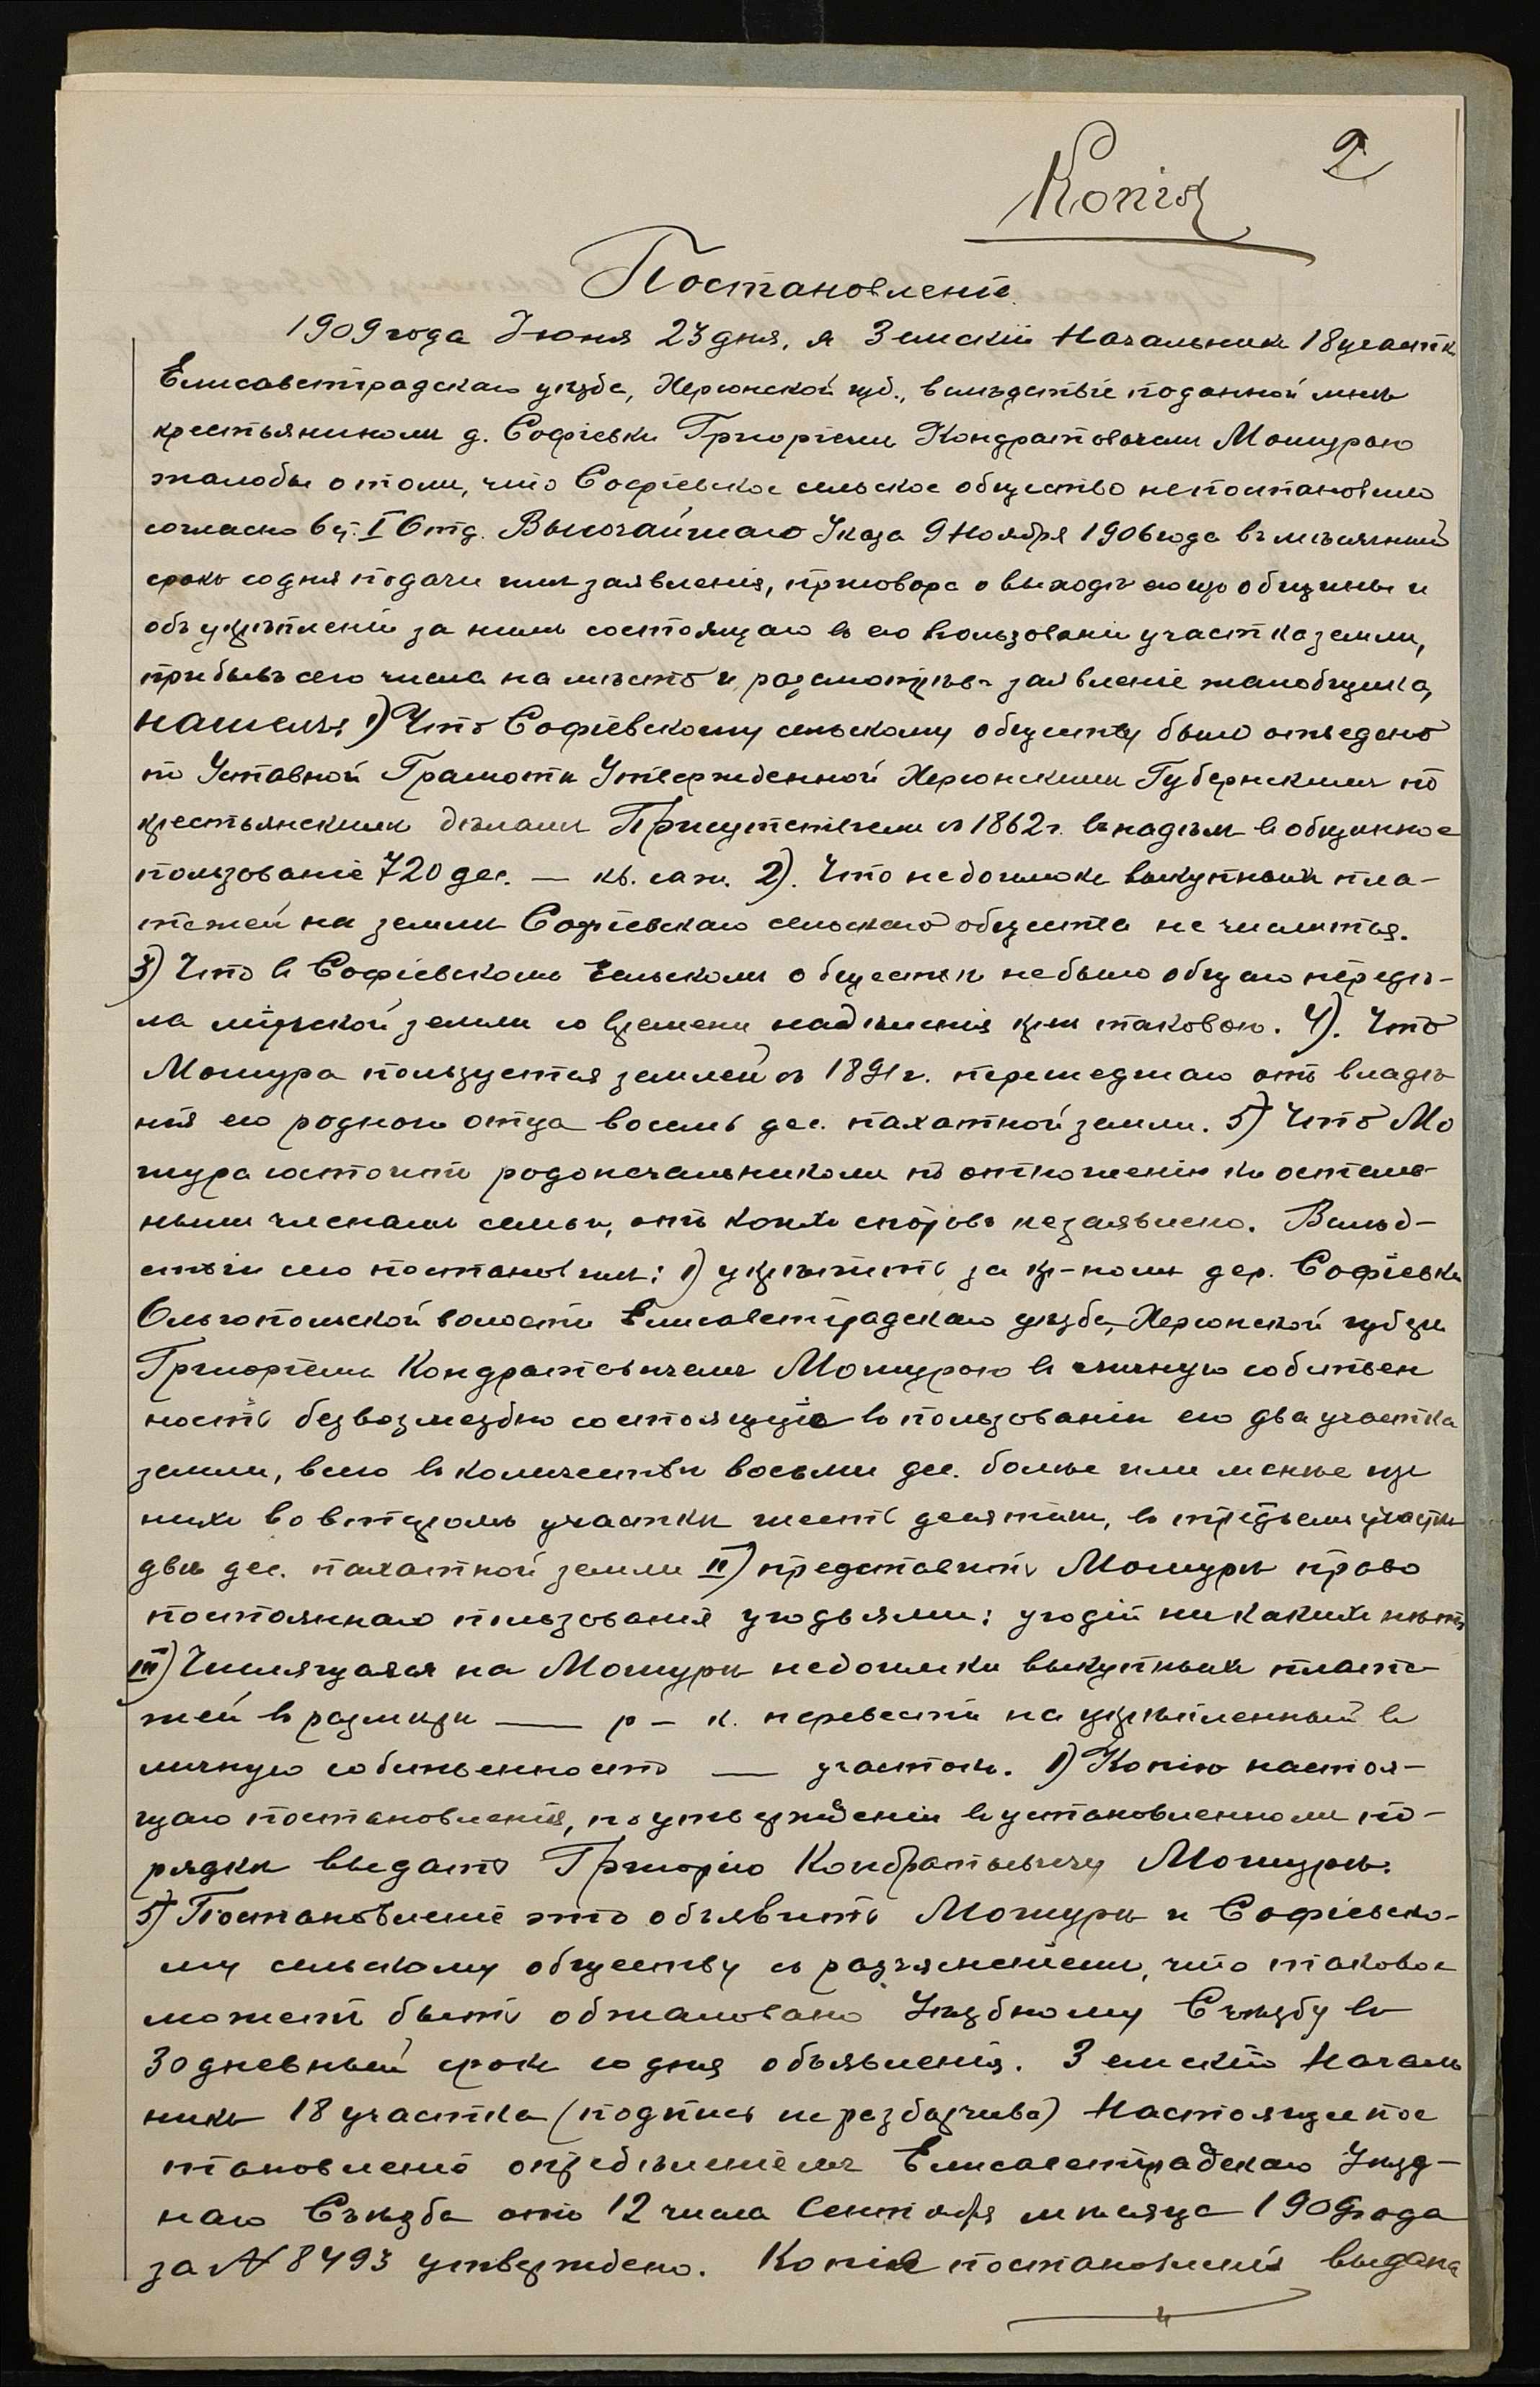 2
Копія
Постановленіе
1909 года Іюня 23 дня, я Земскій Начальникъ 18 участк
Елисаветградскаго уѣзда, Херсонской губ., вслѣдствіе поданной мнѣ
крестьяниномъ д. Софіевки Григоріемъ Кондратовичемъ Мошурою
жалобы о томъ, что Софіевское сельское общество не постановило
согласно 6 п. I Отд. Высочайшаго Указа 9 Ноября 1906 года въ мѣсячный
срокъ со дня подачи имъ заявленія, приговора о выходѣ его изъ общины и
объ укрѣпленіи за нимъ состоящаго въ его пользованіи участка земли,
прибывъ сего числа на мѣсто и разсмотрѣвъ заявленіе жалобщика,
нашелъ: 1) Что Софіевскому сельскому обществу было отведено
по Уставной Грамотѣ Утвержденной Херсонскимъ Губернскимъ по
крестьянскимъ дѣламъ Присутствіемъ въ 1862 г. въ надѣлъ въ общинное
пользованіе 720 дес. — кв. саж. 2). Что недоимокъ выкупныхъ пла-
тежей на землѣ Софіевскаго сельскаго общества не числится.
3) Что въ Софіевскомъ сельскомъ обществѣ не было общаго передѣ-
ла мірской земли со времени надѣленія кр-нъ таковою. 4). Что
Мошура пользуется землей съ 1891 г. перешедшаго отъ владѣ
нія его родного отца восемь дес. пахатной земли. 5) Что Мо
шура состоитъ родоначальникомъ по отношенію къ осталь-
нымъ членамъ семьи, отъ коихъ споровъ не заявлено. Вслѣд-
ствіе сего постановилъ: 1) укрѣпить за кр-номъ дер. Софіевки
Ольгопольской волости Елисаветградскаго уѣзда, Херсонской губерн
Григоріемъ Кондратовичемъ Мошурою въ личную собствен
ность безвозмездно состоящіе въ пользованіи его два участка
земли, всего въ количествѣ восьми дес. болѣе или менѣе изъ
нихъ во второмъ участкѣ шесть десятинъ, въ третьемъ участкѣ
двѣ дес. пахатной земли II) предоставить Мошурѣ право
постояннаго пользованія угодьями: угодій никакихъ нѣтъ
III) Числящаяся на Мошурѣ недоимки выкупныхъ плате-
жей въ размѣрѣ — р — к. перевести на укрѣпленный въ
личную собственность — участокъ. 1) Копію настоя-
щаго постановленія, по утвержденіи въ установленномъ по-
рядкѣ выдать Григорію Кондратьевичу Мошурѣ.
5) Постановленіе это объявить Мошурѣ и Софіевско-
му сельскому обществу съ разъясненіемъ, что таковое
можетъ быть обжаловано Уѣздному Съѣзду въ
30 дневный срокъ со дня объявленія. Земскій Началь
никъ 18 участка (подпись неразборчива) Настоящее пос
тановленіе опредѣленіемъ Елисаветградскаго Уѣзд-
наго Съѣзда отъ 12 числа Сентября мѣсяца 1909 года
за № 8493 утверждено. Копія постановленія выдана